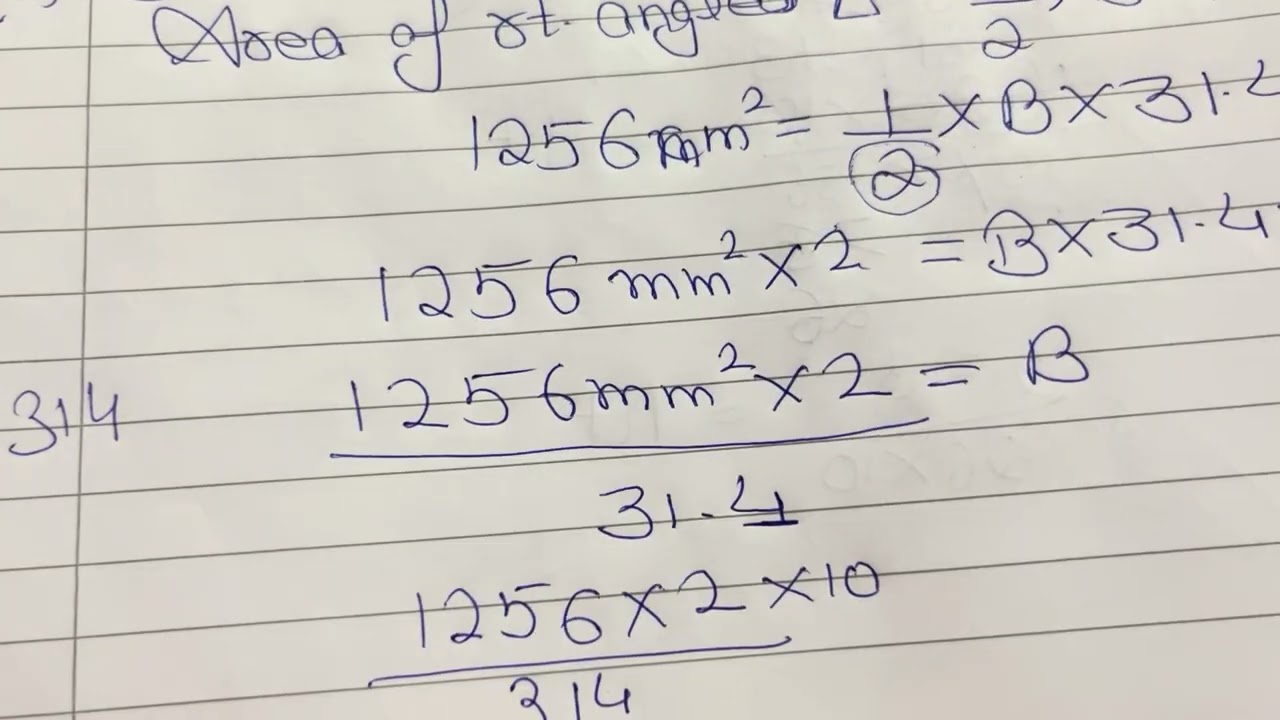 Area of rt. angled Δ
2
1256mm² = 1/2 × B × 31.4
1256 mm² × 2 = B × 31.4
314
1256mm² × 2 = B
31.4
1256 × 2 × 10
314